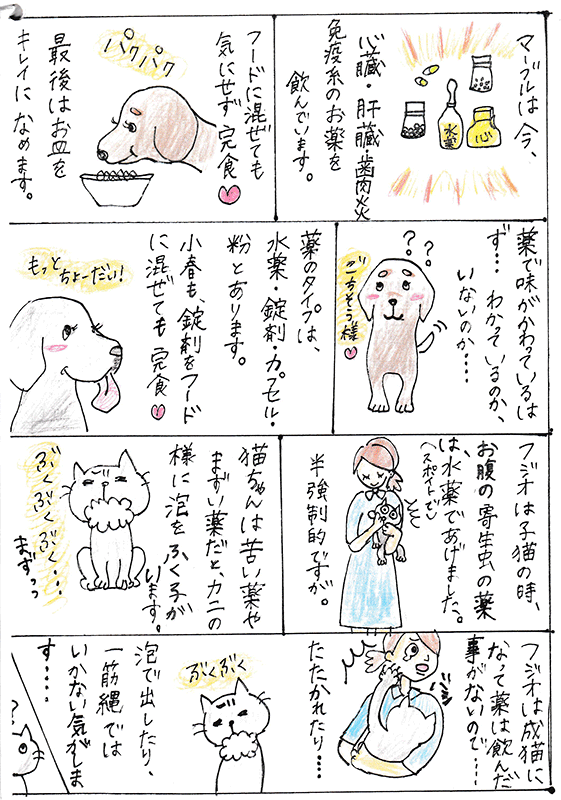 マーブルは今、
心臓・肝臓・歯肉炎
免疫系のお薬を
飲んでいます。
水薬
心
フードに混ぜても
気にせず完食
パクパク
最後はお皿を
キレイになめます。
薬で味がかわっているは
ず…わかっているのか、
いないのか…。
???
ごちそう様
薬のタイプは、
水薬・錠剤・カプセル・
粉とあります。
小春も、錠剤をフード
に混ぜても完食
もっとちょーだい!
フジオは子猫の時、
お腹の寄生虫の薬
は、水薬であげました。
(スポイトで)
半強制的ですが。
猫ちゃんは苦い薬や
まずい薬だと、カニの
様に泡をふく子が
います。
ぶくぶくぶく…
まずっっ
フジオは成猫に
なって薬は飲んだ
事がないので…
たたかれたり…
バシ
ぶくぶく
泡で出したり、
一筋縄では
いかない気がしま
す…。
?